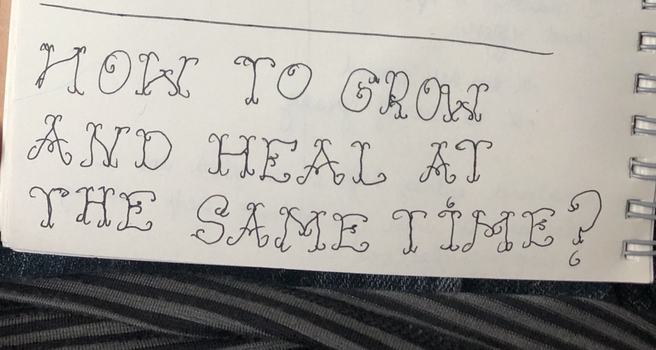 HOW TO GROW
AND HEAL AT
THE SAME TIME?